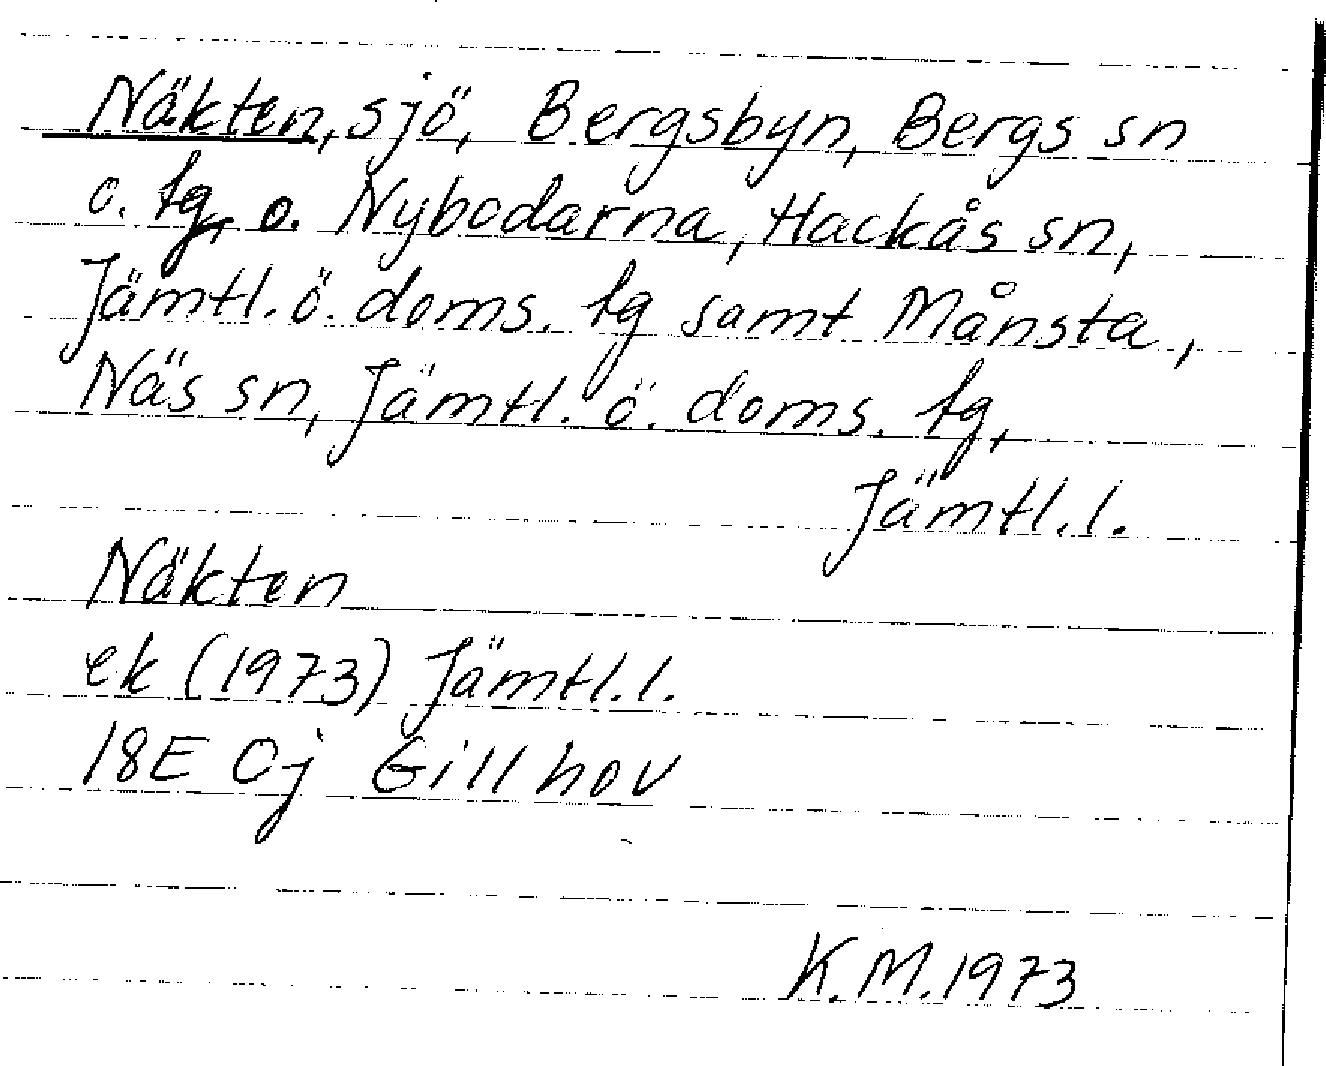 Näkten, sjö, Bergsbyn, Bergs sn
o. tg, o. Nybodarna, Hackås sn,
Jämtl. ö. doms. tg samt Månsta,
Näs sn, Jämtl. ö. doms. tg,
Jämtl. l.
Näkten
ek (1973) Jämtl. l.
18E Oj Gillhov
K.M. 1973